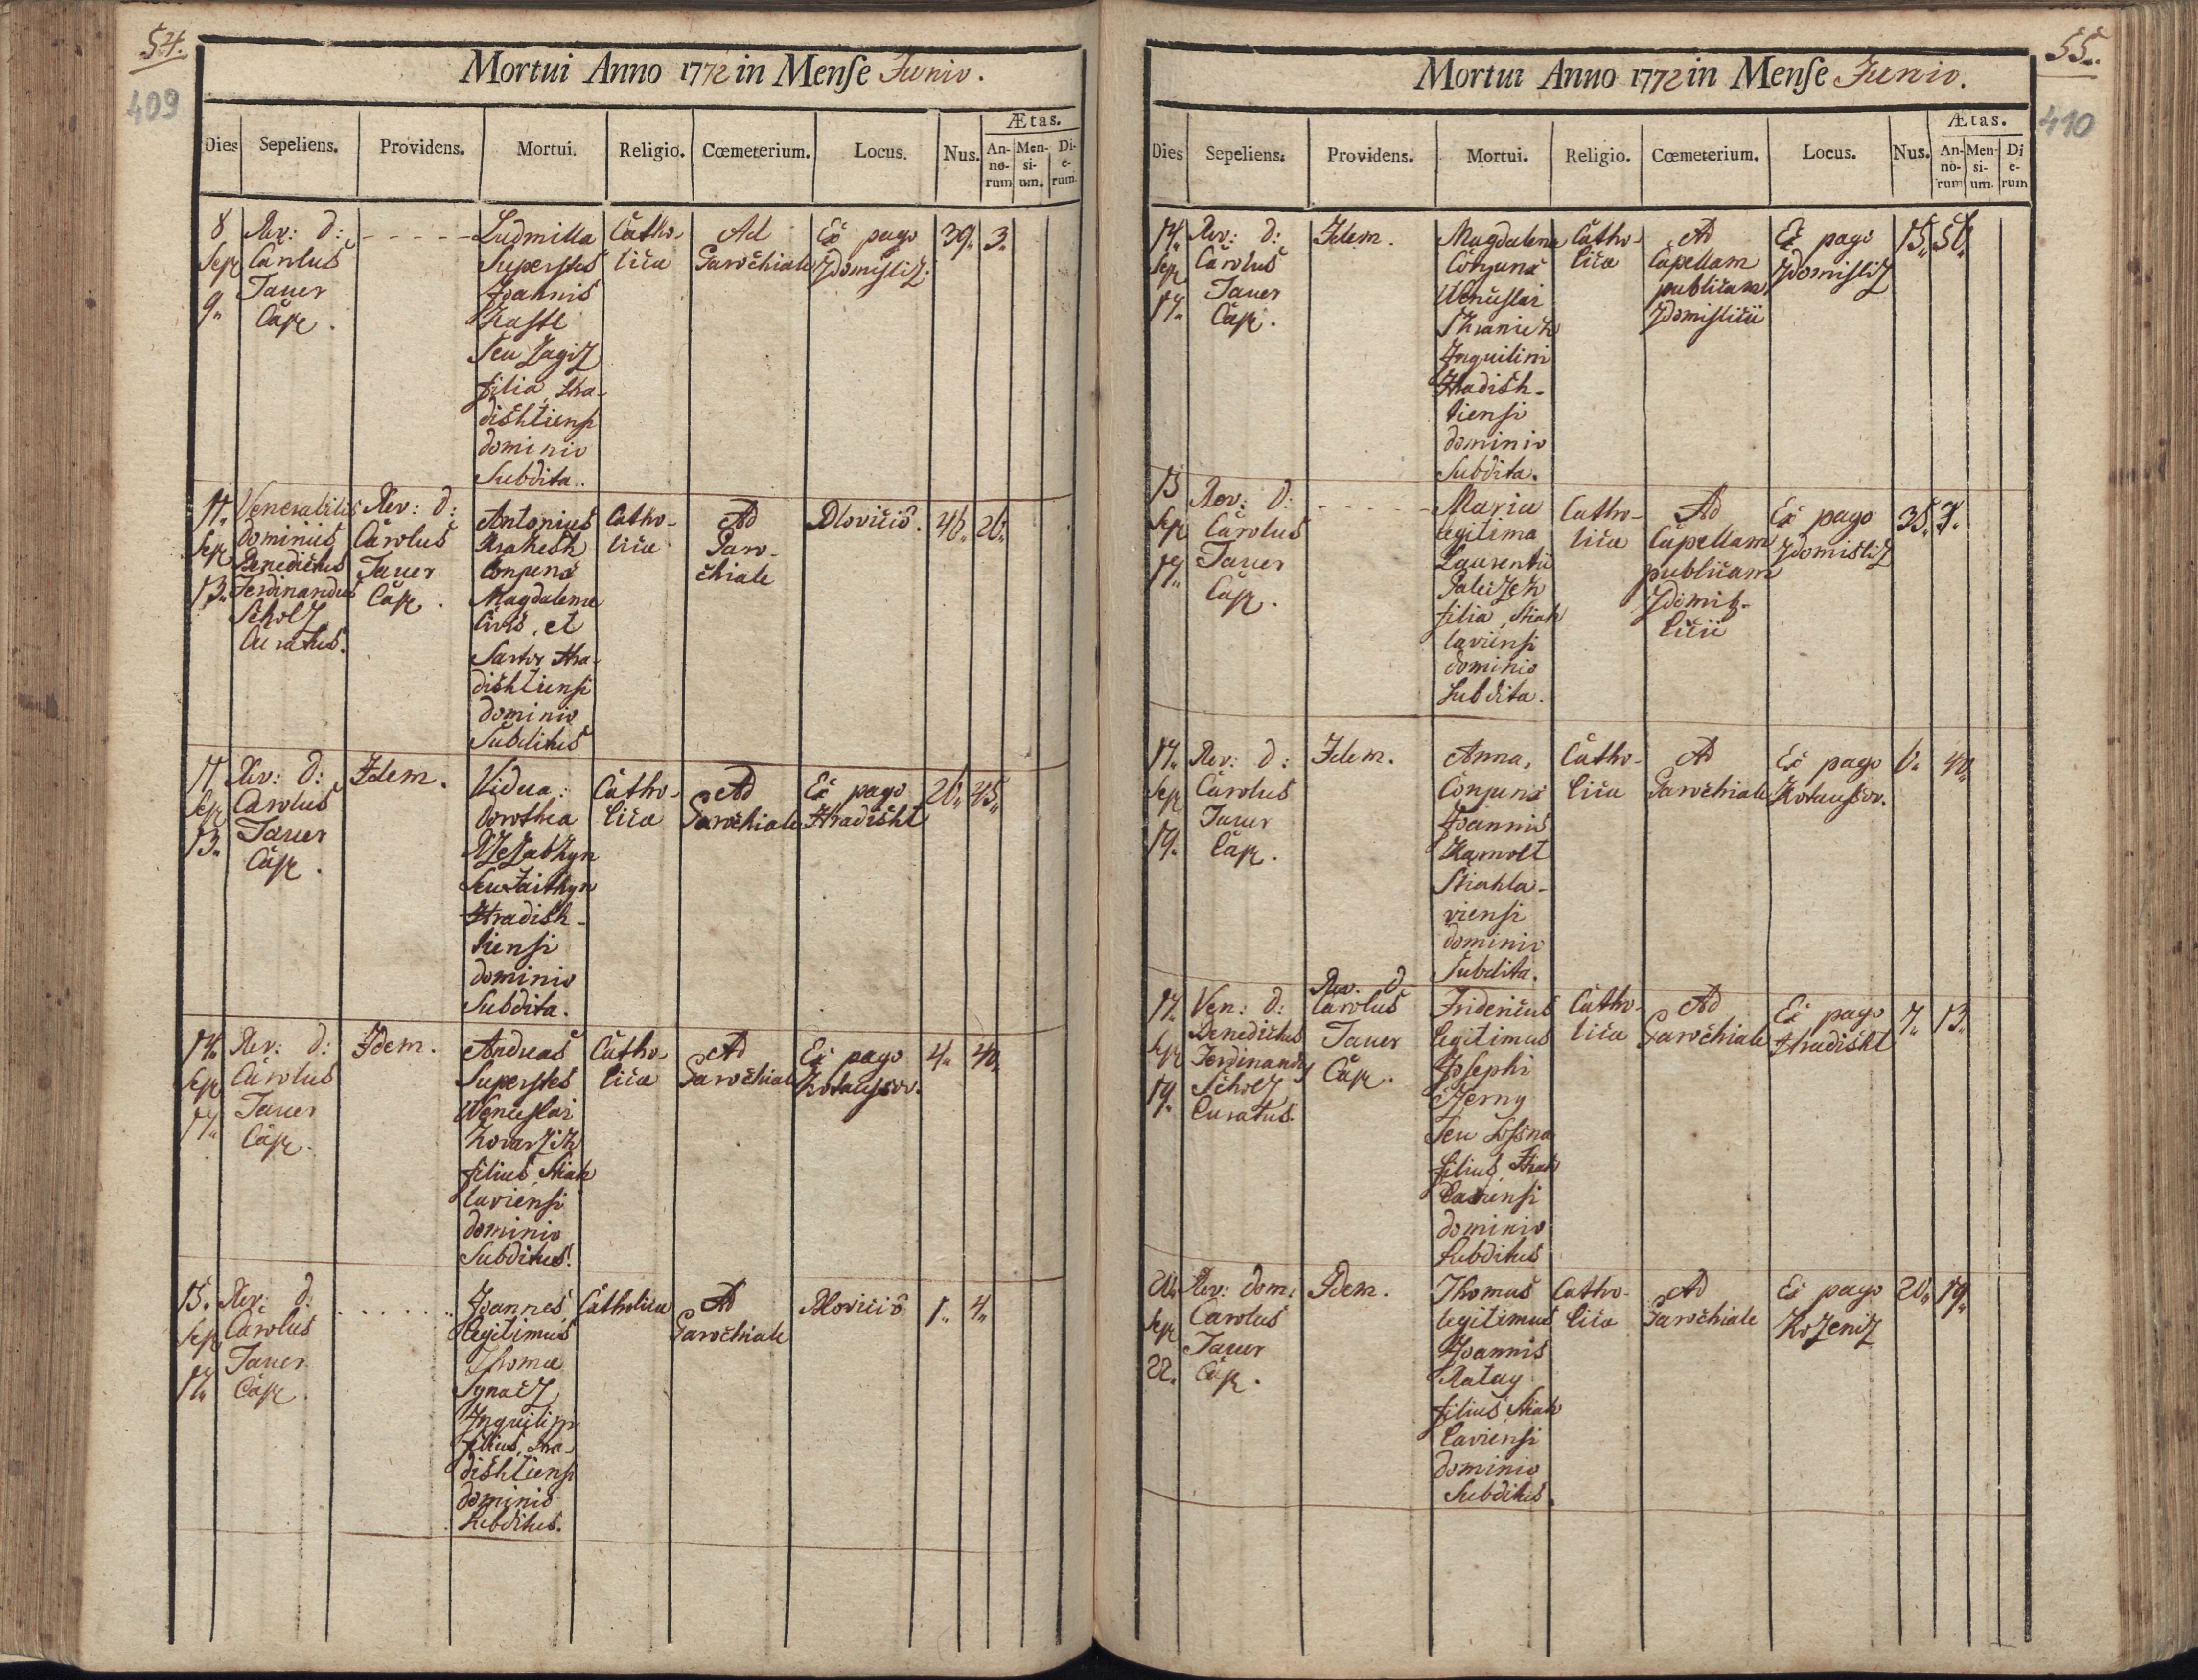 54.
409
Mortui Anno 1772 in Mense Junio.
Ætas.
Dies Sepeliens. Providens. Mortui. Religio. Cœmeterium. Locus. Nus. An-no-rum Men-si-um. Di-e-rum.
8 Sep 9.
Rev: d: Carolus Tauer Cap.
- - - - -
Ludmilla
Superstes
Joannis
Hastl
Seu
filia, Hra-
dishtiensi
dominio
Subdita.
Catho-
lica
Ad
Parochiale
Ex pago
Zdomislitz.
39. 3.
11. Sep 13.
Venerabilis
Dominus
Benedictus
Ferdinandus
Scholz
Curatus.
Rev: d:
Carolus
Tauer
Cap.
Antonius
Conjunx
Magdalenæ
Civis, et
Sartor Hra-
dishtiensi
dominio
Subditus
Catho-
lica
Ad
Paro-
chiale
Blovicio.
46. 26.
11 Sep 13.
Rev: d:
Carolus
Tauer
Cap.
Idem.
Vidua:
Dorothea
Hradish-
tiensi
dominio
Subdita.
Catho-
lica
Ad
Parochiale
Ex pago
Hradisht
26. 45.
14. Sep 17.
Rev: d:
Carolus
Tauer
Cap.
Idem.
Andreas
Superstes
Wenceslai
Kovarzik
filius, Stiah
laviensi
dominio
Subditus.
Catho-
lica
Ad
Parochiale
Ex pago
Kotaussov.
4. 40.
15. Sep 17.
Rev: d:
Carolus
Tauer
Cap.
. . . . . .
Joannes,
legitimus
Thomæ
Synacz
Inquilini
filius, Hra-
dishtiensi
dominio
Subditus.
Catholica
Ad
Parochiale
Blovicio
1. 4.
55.
410
Mortui Anno 1772 in Mense Junio.
Ætas.
Dies Sepeliens. Providens. Mortui. Religio. Cœmeterium. Locus. Nus. An-no-rum Men-si-um. Di-e-rum
14. Sep 17.
Rev: d:
Carolus
Tauer
Cap.
Idem.
Magdalena
Conjunx
Wenceslai
Inquilini
Hradish-
tiensi
dominio
Subdita.
Catho-
lica
Ad
Capellam
publicam
Zdomislicii
Ex pago
Zdomislitz
15. 50.
15 Sep 17.
Rev: d:
Carolus
Tauer
Cap.
- - - - -
Maria
legitima
Laurentii
Paleizek
filia, Stiah
laviensi
dominio
Subdita.
Catho-
lica
Ad
Capellam
publicam
Zdomis-
licii
Ex pago
Zdomislitz
35. 7.
17. Sep 19.
Rev: d:
Carolus
Tauer
Cap.
Idem.
Anna,
Conjunx
Joannis
Stiahla-
viensi
dominio
Subdita.
Catho-
lica
Ad
Parochiale
Ex pago
Kotaussov.
6. 40.
17. Sep 19.
Ven: d:
Benedictus
Ferdinandus
Scholz
Curatus.
Rev. d
Carolus
Tauer
Cap.
Fridericus
legitimus
Josephi
Czerny
Seu
filius, Stiah
laviensi
dominio
Subditus
Catho-
lica
Ad
Parochiale
Ex pago
Hradisht
7. 13.
20. Sep 22.
Rev: dom:
Carolus
Tauer
Cap.
Idem.
Thomas
legitimus
Joannis
Ratay
filius Stiah
laviensi
dominio
Subditus.
Catho-
lica
Ad
Parochiale
Ex pago
Kozenitz
20. 19.